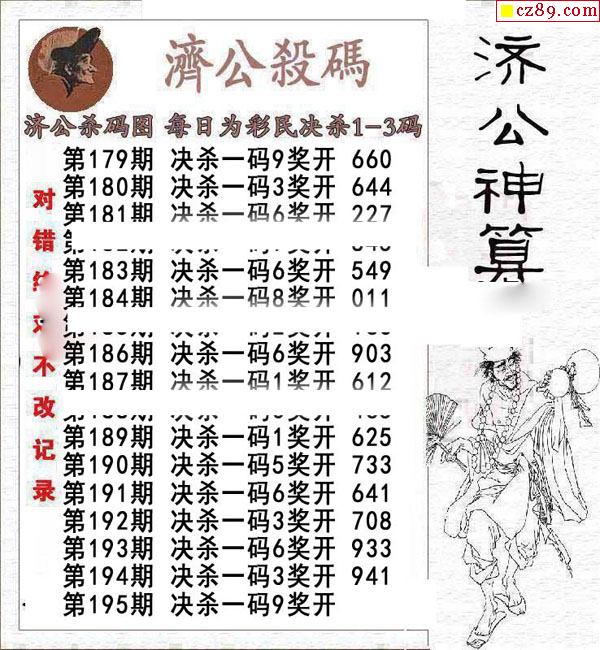 cz89.com
濟公殺碼
济公杀码图 每日为彩民决杀1-3码
第179期 决杀一码9奖开 660
第180期 决杀一码3奖开 644
第181期 决杀一码6奖开 227
第183期 决杀一码6奖开 549
第184期 决杀一码8奖开 011
第186期 决杀一码6奖开 903
第187期 决杀一码1奖开 612
第189期 决杀一码1奖开 625
第190期 决杀一码5奖开 733
第191期 决杀一码6奖开 641
第192期 决杀一码3奖开 708
第193期 决杀一码6奖开 933
第194期 决杀一码3奖开 941
第195期 决杀一码9奖开
对错不改记录
济公神算